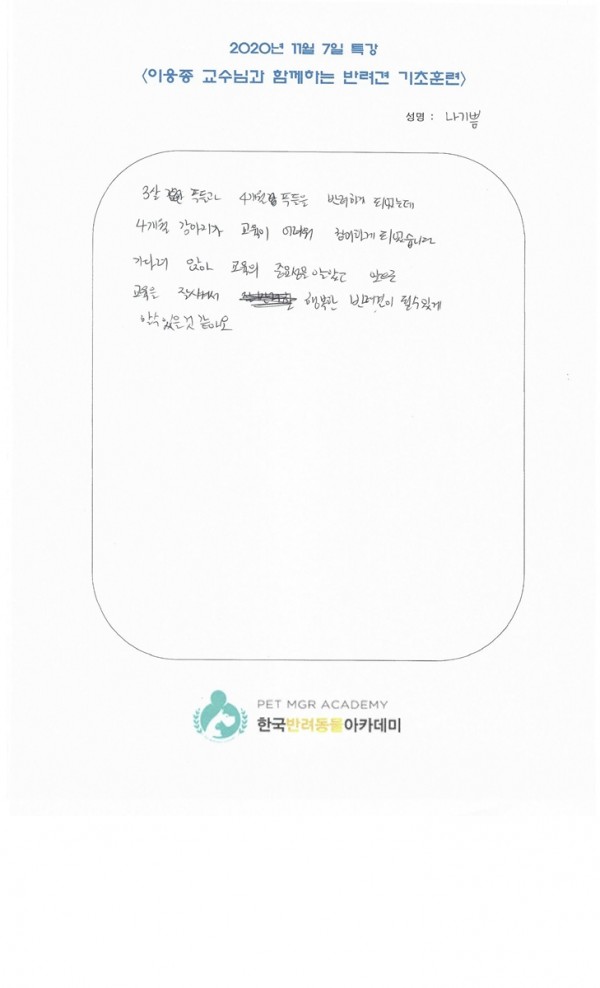 2020년 11월 7일 특강
<이웅종 교수님과 함께하는 반려견 기초훈련>
성명 : 나기쁨
3살 푸들과 4개월 푸들을 반려하게 되었는데
4개월 강아지가 교육이 어려워 참여하게 되었습니다
기다려 앉아 교육의 중요성을 알았고 올바른
교육을 행복한 반려견이 될수있게
알수있은것 같아요
PET MGR ACADEMY
한국반려동물아카데미